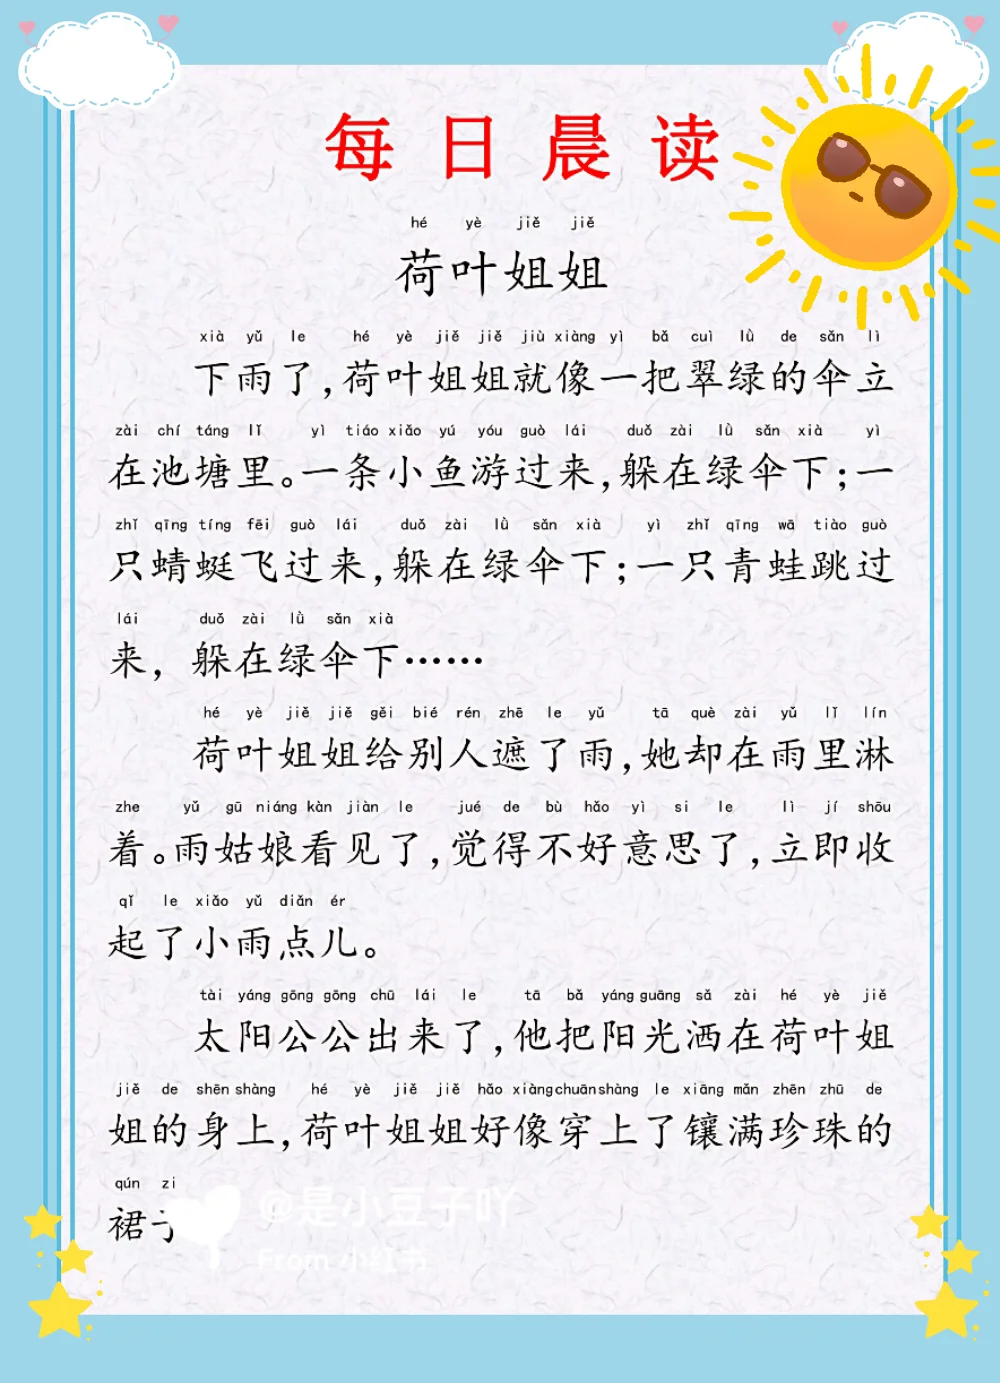 每日晨读
hé yè jiě jiě
荷叶姐姐
xià yǔ le hé yè jiě jiě jiù xiàng yì bǎ cuì lǜ de sǎn lì
下雨了,荷叶姐姐就像一把翠绿的伞立
zài chí táng lǐ yì tiáo xiǎo yú yóu guò lái duǒ zài lǜ sǎn xià yì
在池塘里。一条小鱼游过来,躲在绿伞下;一
zhǐ qīng tíng fēi guò lái duǒ zài lǜ sǎn xià yì zhǐ qīng wā tiào guò
只蜻蜓飞过来,躲在绿伞下;一只青蛙跳过
lái duǒ zài lǜ sǎn xià
来，躲在绿伞下……
hé yè jiě jiě gěi bié rén zhē le yǔ tā què zài yǔ lǐ lín
荷叶姐姐给别人遮了雨,她却在雨里淋
zhe yǔ gū niáng kàn jiàn le jué de bù hǎo yì si le lì jí shōu
着。雨姑娘看见了,觉得不好意思了,立即收
qǐ le xiǎo yǔ diǎn ér
起了小雨点儿。
tài yáng gōng gōng chū lái le tā bǎ yáng guāng sǎ zài hé yè jiě
太阳公公出来了,他把阳光洒在荷叶姐
jiě de shēn shàng hé yè jiě jiě hǎo xiàng chuān shàng le xiāng mǎn zhēn zhū de
姐的身上,荷叶姐姐好像穿上了镶满珍珠的
qún zi
裙子
@是小豆子吖
From 小红书